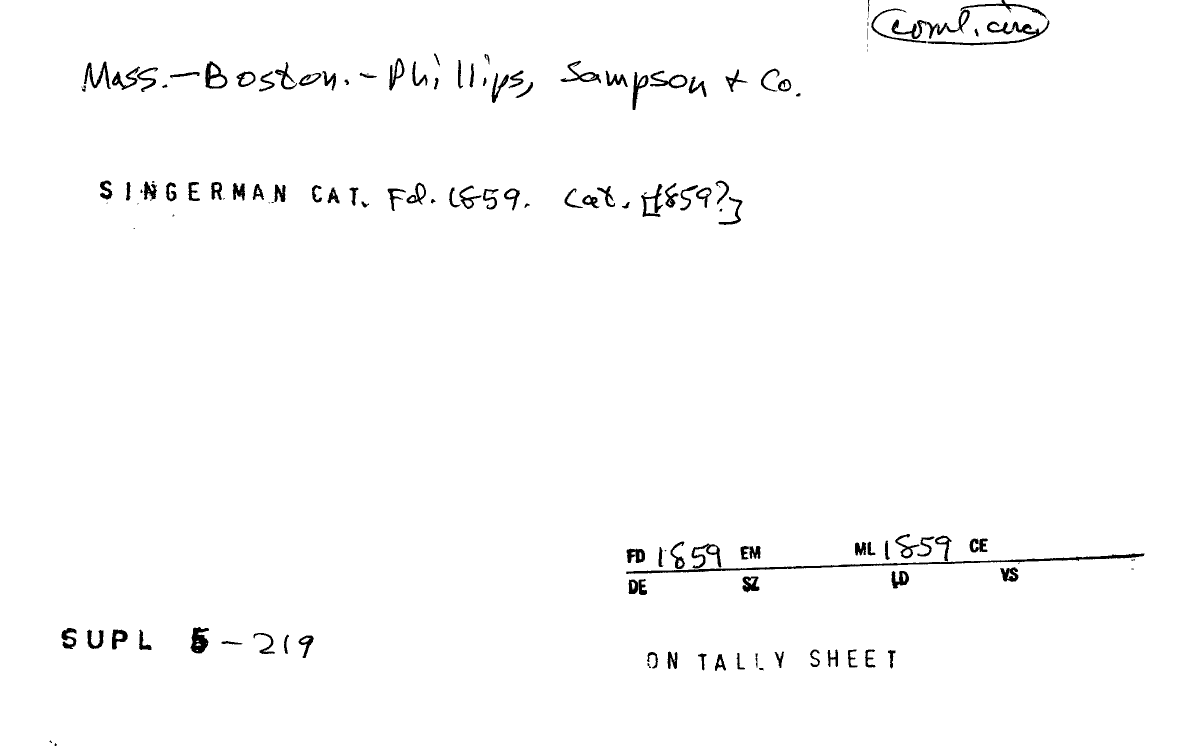 coml. circ
Mass.—Boston.—Phillips, Sampson + Co.
SINGERMAN CAT. Fd. 1859. Cat. [1859?]
FD 1859 EM ML 1859 CE
DE SZ LD VS
SUPL 5-219
ON TALLY SHEET